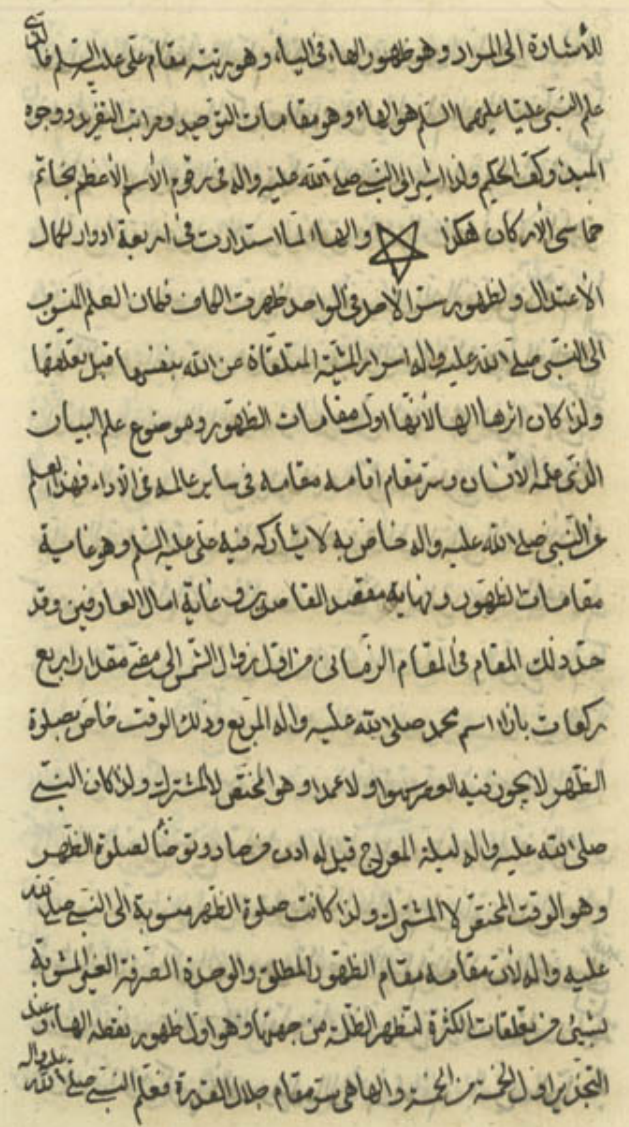 للأشارة الى المراد وهو ظهور الهاء فى الياء وهو رتبة مقام على عليه السلم فالذى
علم النبى عليا عليهما السلم هو الهاء وهو مقامات التوحيد ومراتب التفريد ووجوه
المبدء وكف الحكيم ولذا اشير الى النبى صلى الله عليه واله فى رقوم الأسم الأعظم بخاتم
خماسى الأركان هكذا والهاء لما استدارت فى اربعة ادوار لكمال
الأعتدال ولظهور سر الأحد فى الواحد ظهرت الكاف فكان العلم المنسوب
الى النبى صلى الله عليه واله اسرار المشية المتلقاة من الله بنفسها قبل تعلقها
ولذا كان اثرها الهاء لأنها اول مقامات الظهور وهو موضوع علم البيان
الذى علمه الأنسان وسر مقام اقامه مقامه فى ساير عالمه فى الأداء فهذا العلم
من النبى صلى الله عليه واله خاص به لا يشاركه فيه على عليه السلم وهو غاية
مقامات الظهور ونهاية مقصد القاصدين وغاية امال العارفين وقد
حدد ذلك المقام فى المقام الزمانى من اول زوال الشمس الى مضى مقدار اربع
ركعات بازاء اسم محمد صلى الله عليه واله المربع وذلك الوقت خاص بصلوة
الظهر لا يجوز فيه العصر سهوا ولا عمدا وهو المختص لا المشترك ولذا كان النبى
صلى الله عليه واله ليلة المعراج قيل له ادن من صاد وتوضأ لصلوة الظهر
وهو الوقت المختص لا المشترك ولذا كانت صلوة الظهر منسوبة الى النبى صلى الله
عليه واله لأن مقامه مقام الظهور المطلق والوحدة الصرفة الغير المشوبة
بشيئ من تعلقات الكثرة لتظهر الظلة من جهتها وهو اول ظهور نقطة الهاء وعند
التجذير اول الخمسة من الخمسة والهاء هى سر مقام جلال القدرة فعلم النبى صلى الله عليه واله